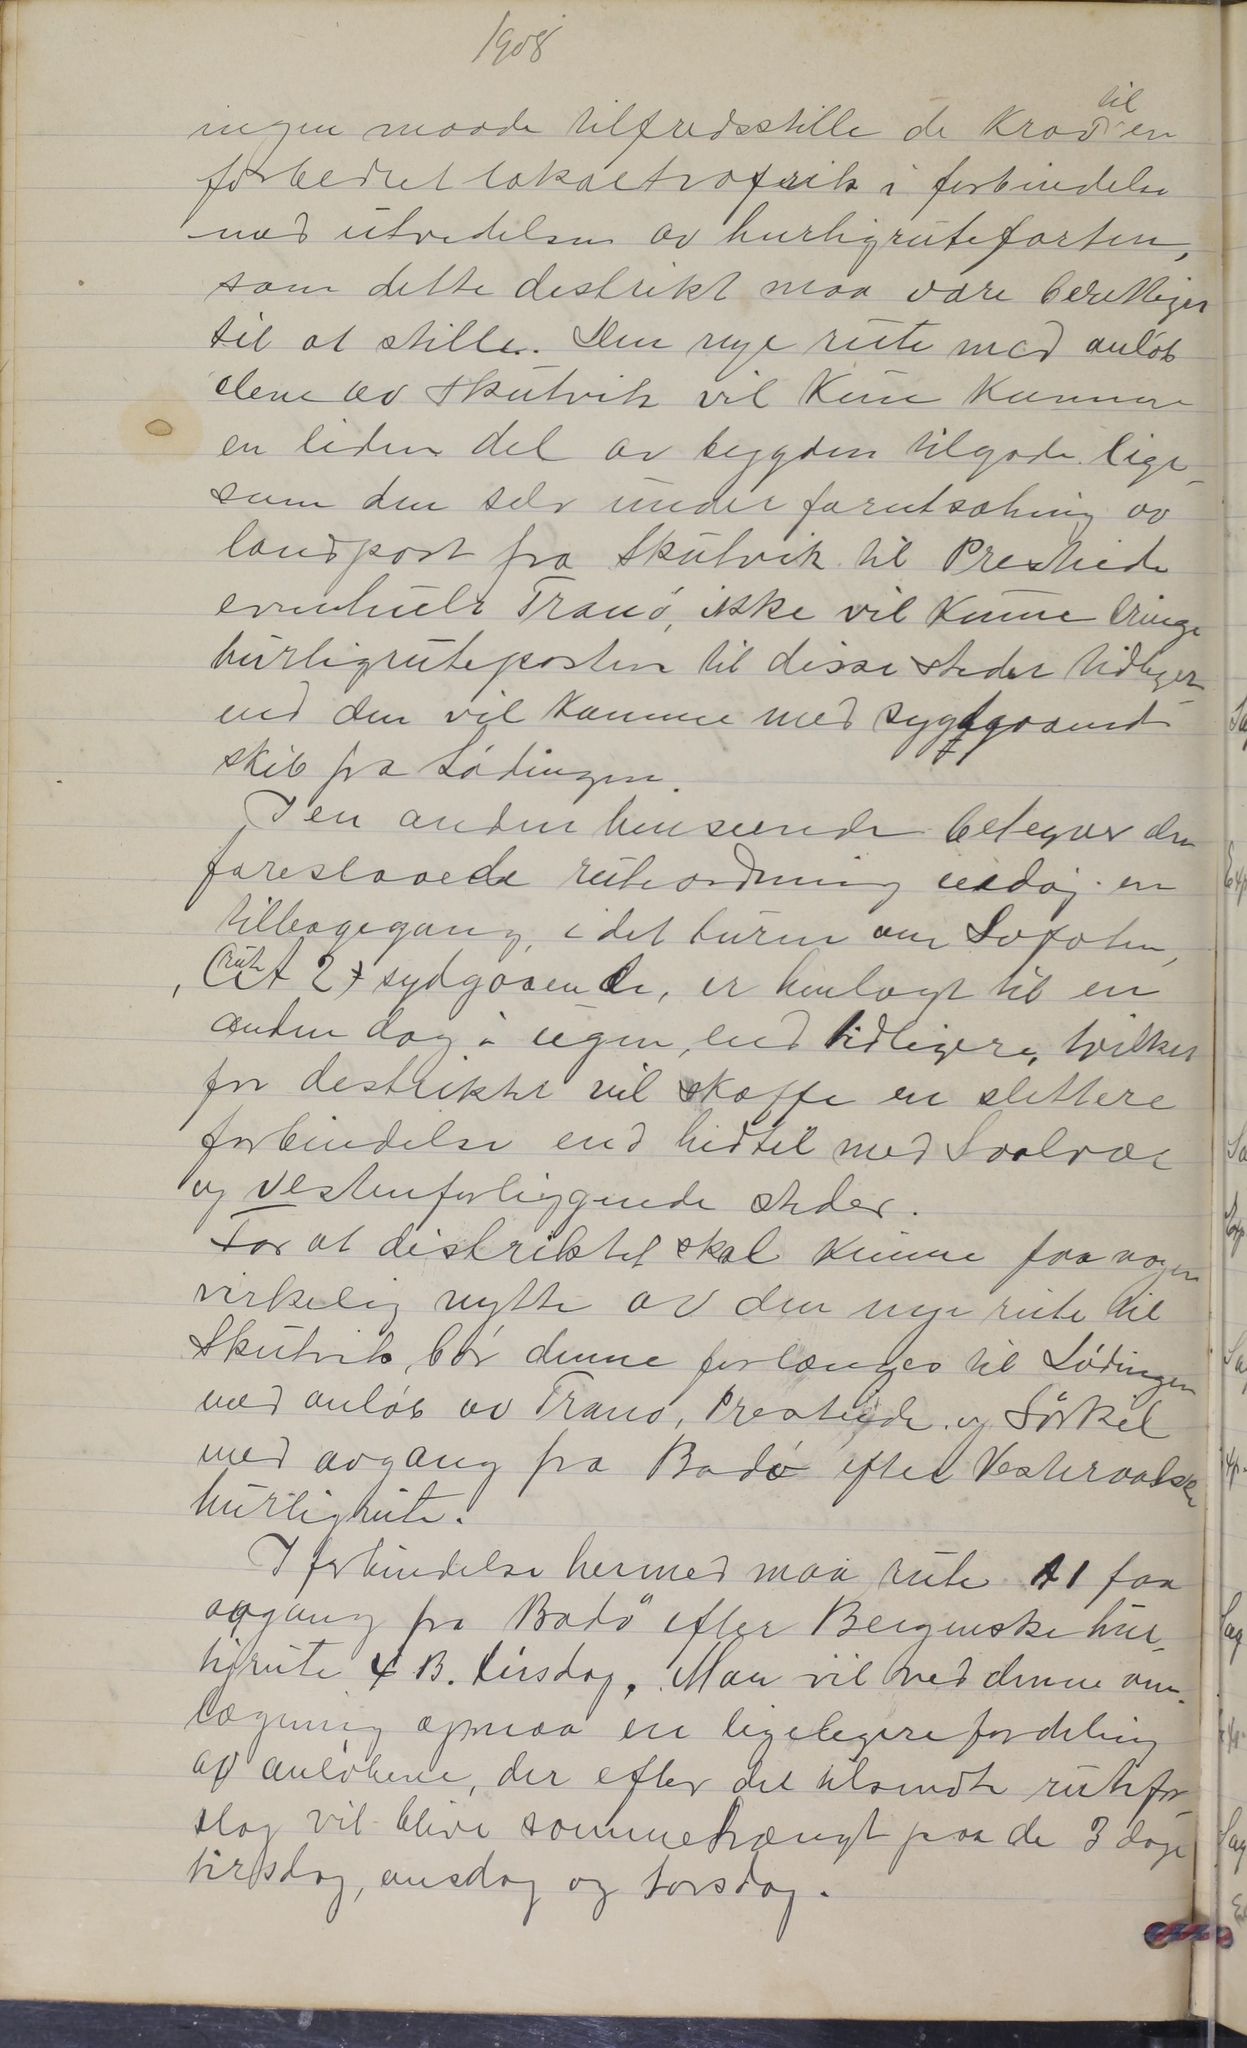 1908
ingen maade tilfredsstille de Krav til en
forbedret lokaltrafik i forbindelse
med utvidelsen av hurtigrutefarten,
som dette destrikt maa være berettiget
til at stille. Den nye rute med anløb
dene av Skutvik vil Kun Komme
en liden del av bygden tilgode lige
som den selv under forutsætning av
landpost fra Skutvik til Presteide
eventuelt Tranø, ikke vil Kunne bringe
hurtigruteposten til disse steder tidligere
end den vil Komme med sydgaaende
skib fra Lødingen.
I en anden henseende betegner den
foreslaaede ruteordning endog en
tilbagegang, i det turen om Lofoten,
(rute A 2) sydgaaende, er henlagt til en
anden dag i ugen, end tidligere, hvilket
for destriktet vil skaffe en slettere
forbindelse end hidtil med Svolvær
og vestenforliggende steder.
For at distriktet skal Kunne faa nogen
virkelig nytte av den nye rute til
Skutvik bør denne forlænges til Lødingen
med anløb av Tranø, Presteide og Sørkil
med avgang fra Bodø efter Vesteraalske
hurtigrute.
I forbindelse hermed maa rute A 1 faa
avgang fra Bodø efter Bergenske hur-
tigrute 4 B. tirsdag. Man vil ved denne om-
lægning opnaa en ligeligere fordeling
av anløbene, der efter det tilsendte rutefor-
slag vil blive sammentrængt paa de 3 dage
tirsdag, onsdag og torsdag.